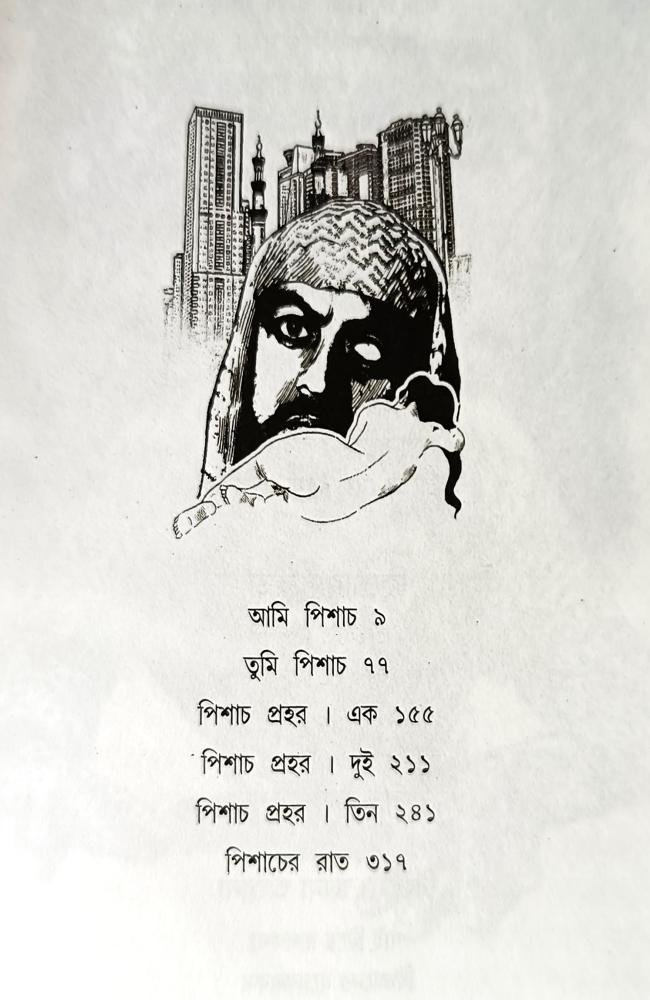 আমি পিশাচ ৯
তুমি পিশাচ ৭৭
পিশাচ প্রহর । এক ১৫৫
পিশাচ প্রহর । দুই ২১১
পিশাচ প্রহর । তিন ২৪১
পিশাচের রাত ৩১৭